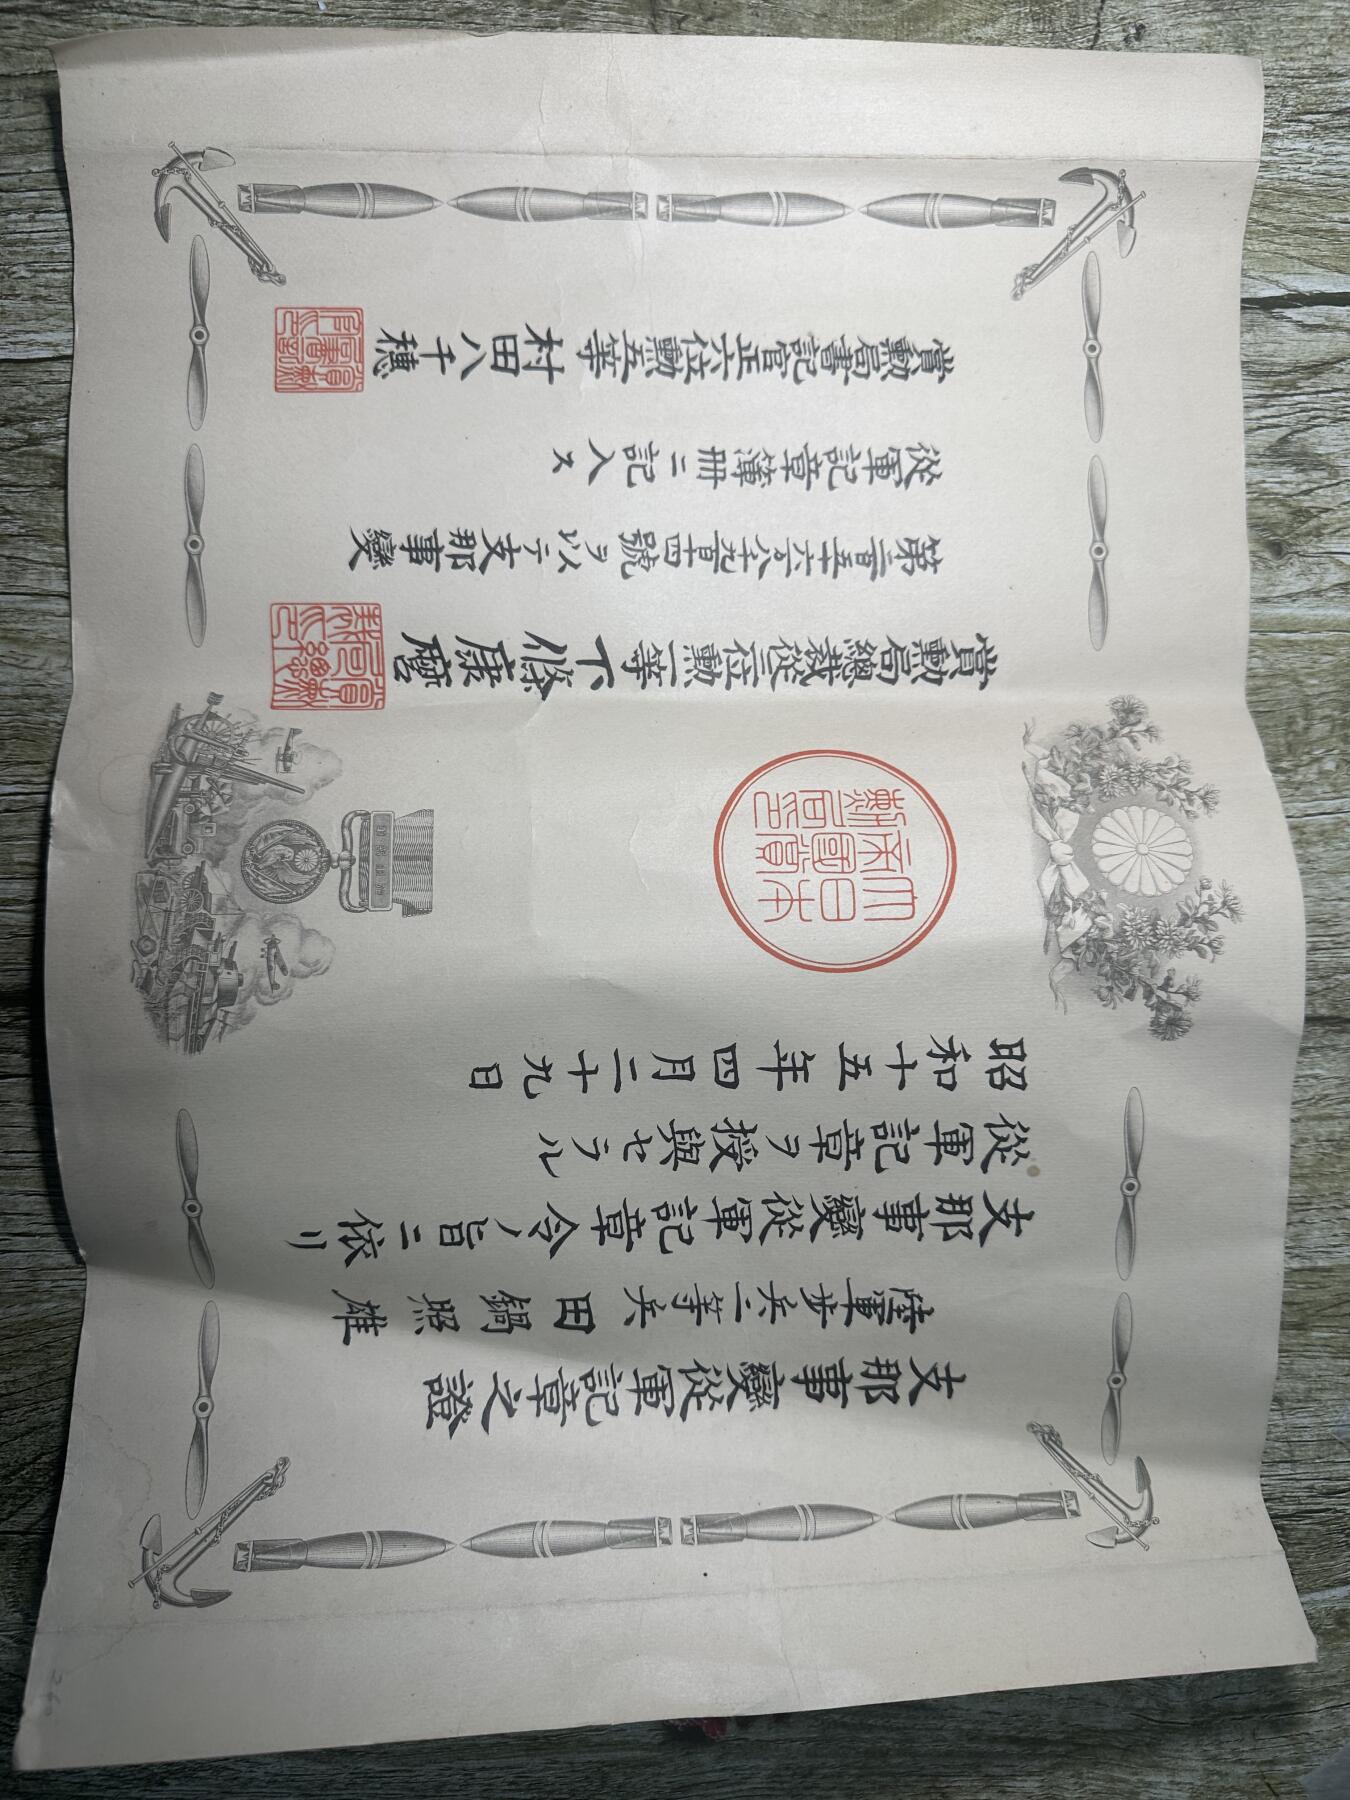 支那事變從軍記章之證
陸軍步兵一等兵田鍋照雄
支那事變從軍記章令ノ旨ニ依リ
從軍記章ヲ授與セラル
昭和十五年四月二十九日
大日本帝國賞勳局印
賞勳局總裁從三位勳一等下條康麿
第 號ヲ以テ支那事變
從軍記章簿冊ニ記入ス
賞勳局書記官正六位勳五等村田八千穗